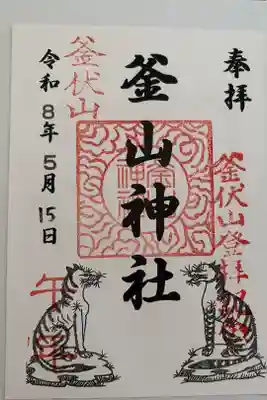 奉拝
釜伏山登拝
釜山神社
釜伏山
令和8年5月15日